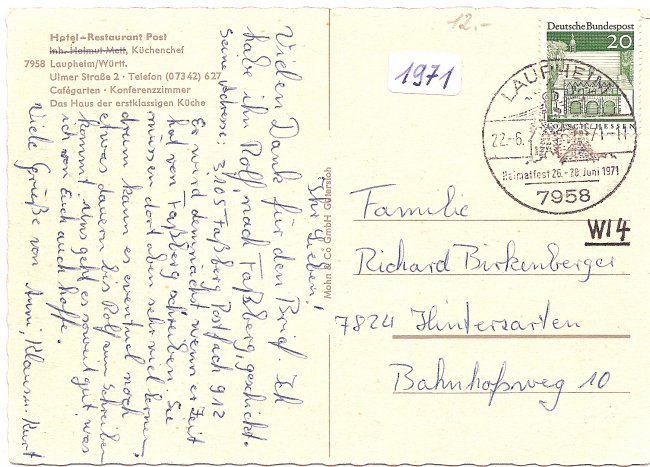 Hotel-Restaurant Post
Inh. Helmut Mett, Küchenchef
7958 Laupheim/Württ.
Ulmer Straße 2 · Telefon (0 73 42) 6 27
Cafégarten · Konferenzzimmer
Das Haus der erstklassigen Küche
Ihr Lieben!
Vielen Dank für den Brief. Ich
habe ihn Rolf nach Faßberg geschickt.
Seine Adresse: 3105 Faßberg Postfach 912
Er wird demnächst wenn er Zeit
hat von Faßberg schreiben. Sie
müssen dort oben sehr viel lernen,
drum kann es eventuel noch
etwas dauern bis Rolf zum Schreiben
kommt. Uns geht es soweit gut, was
ich von Euch auch hoffe.
Viele Grüße von Anni, Klaus u. Kurt
Mohn & Co GmbH Gütersloh
12.-
1971
Deutsche Bundespost
20
LAUPHEIM
22.-6.71-11
Heimatfest 26.-28. Juni 1971
7958
W14
Familie
Richard Birkenberger
7824 Hinterzarten
Bahnhofsweg 10